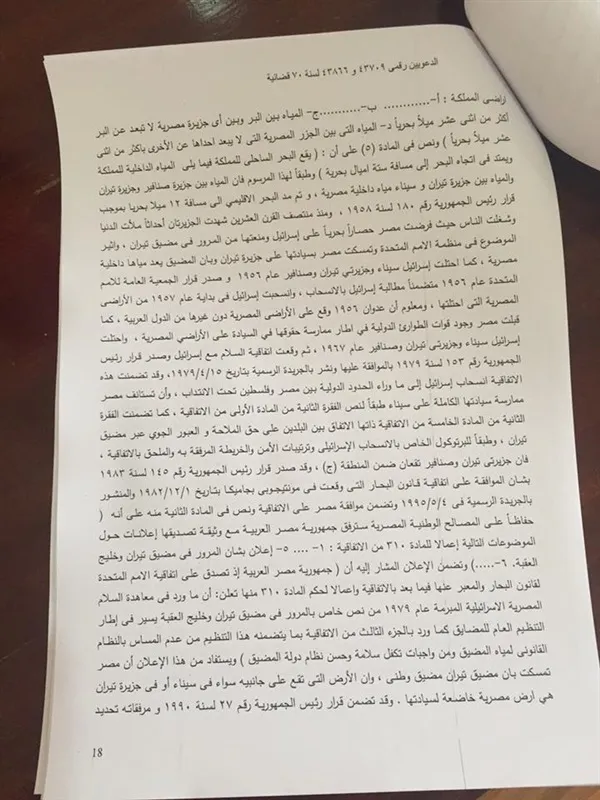 الدعويين رقمى ٤٣٧٠٩ و ٤٣٨٦٦ لسنة ٧٠ قضائية
اراضى المملكة : أ-............ ب-...........ج- المياه بين البر وبين أى جزيرة مصرية لا تبعد عن البر
أكثر من اثنى عشر ميلاً بحرياً د- المياه التى بين الجزر المصرية التى لا يبعد احداها عن الأخرى باكثر من اثنى
عشر ميلاً بحرياً ) ونص فى المادة (٥) على أن : ( يقع البحر الساحلى للمملكة فيما يلى المياه الداخلية للمملكة
ويمتد فى اتجاه البحر إلى مسافة ستة اميال بحرية ) وطبقاً لهذا المرسوم فان المياه بين جزيرة صنافير وجزيرة تيران
والمياه بين جزيرة تيران و سيناء مياه داخلية مصرية ، و تم مد البحر الاقليمى الى مسافة ١٢ ميلا بحريا بموجب
قرار رئيس الجمهورية رقم ١٨٠ لسنة ١٩٥٨ ، ومنذ منتصف القرن العشرين شهدت الجزيرتان أحداثاً ملأت الدنيا
وشغلت الناس حيث فرضت مصر حصاراً بحرياً على إسرائيل ومنعتها من المرور فى مضيق تيران ، واثير
الموضوع فى منظمة الامم المتحدة وتمسكت مصر بسيادتها على جزيرة تيران وبان المضيق يعد مياها داخلية
مصرية ، كما احتلت إسرائيل سيناء وجزيرتي تيران وصنافير عام ١٩٥٦ و صدر قرار الجمعية العامة للامم
المتحدة عام ١٩٥٦ متضمناً مطالبة إسرائيل بالانسحاب ، وانسحبت إسرائيل فى بداية عام ١٩٥٧ من الأراضى
المصرية التى احتلتها ، ومعلوم أن عدوان ١٩٥٦ وقع على الأراضى المصرية دون غيرها من الدول العربية ، كما
قبلت مصر وجود قوات الطوارئ الدولية في اطار ممارسة حقوقها في السيادة على الأراضي المصرية ، واحتلت
إسرائيل سيناء وجزيرتى تيران وصنافير عام ١٩٦٧ ، ثم وقعت اتفاقية السلام مع إسرائيل وصدر قرار رئيس
الجمهورية رقم ١٥٣ لسنة ١٩٧٩ بالموافقة عليها ونشر بالجريدة الرسمية بتاريخ ١٩٧٩/٤/١٥، وقد تضمنت هذه
الاتفاقية انسحاب إسرائيل إلى ما وراء الحدود الدولية بين مصر وفلسطين تحت الانتداب ، وأن تستانف مصر
ممارسة سيادتها الكاملة على سيناء طبقاً لنص الفقرة الثانية من المادة الأولى من الاتفاقية ، كما تضمنت الفقرة
الثانية من المادة الخامسة من الاتفاقية ذاتها الاتفاق بين البلدين على حق الملاحة و العبور الجوي عبر مضيق
تيران ، وطبقاً للبرتوكول الخاص بالانسحاب الإسرائيلى وترتيبات الأمن والخريطة المرفقة به والملحق بالاتفاقية ،
فان جزيرتى تيران وصنافير تقعان ضمن المنطقة (ج) ، وقد صدر قرار رئيس الجمهورية رقم ١٤٥ لسنة ١٩٨٣
بشان الموافقة على اتفاقية قانون البحار التى وقعت فى مونتيجوبى بجاميكا بتاريخ ١٩٨٢/١٢/١ والمنشور
بالجريدة الرسمية فى ١٩٩٥/٥/٤ وتضمن موافقة مصر على الاتفاقية ونص فى المادة الثانية منه على أنه (
حفاظاً على المصالح الوطنية المصرية سترفق جمهورية مصر العربية مع وثيقة تصديقها إعلانات حول
الموضوعات التالية إعمالا للمادة ٣١٠ من الاتفاقية : ١- .... ٥- إعلان بشان المرور فى مضيق تيران وخليج
العقبة. ٦-.....) وتضمن الإعلان المشار إليه أن ( جمهورية مصر العربية إذ تصدق على اتفاقية الامم المتحدة
لقانون البحار والمعبر عنها فيما بعد بالاتفاقية واعمالا لحكم المادة ٣١٠ منها تعلن: أن ما ورد فى معاهدة السلام
المصرية الاسرائيلية المبرمة عام ١٩٧٩ من نص خاص بالمرور فى مضيق تيران وخليج العقبة يسير فى إطار
التنظيم العام للمضايق كما ورد بالجزء الثالث من الاتفاقية بما يتضمنه هذا التنظيم من عدم المساس بالنظام
القانونى لمياه المضيق ومن واجبات تكفل سلامة وحسن نظام دولة المضيق ) ويستفاد من هذا الإعلان أن مصر
تمسكت بان مضيق تيران مضيق وطنى ، وان الأرض التى تقع على جانبيه سواء فى سيناء أو فى جزيرة تيران
هي ارض مصرية خاضعة لسيادتها . وقد تضمن قرار رئيس الجمهورية رقم ٢٧ لسنة ١٩٩٠ و مرفقاته تحديد
18